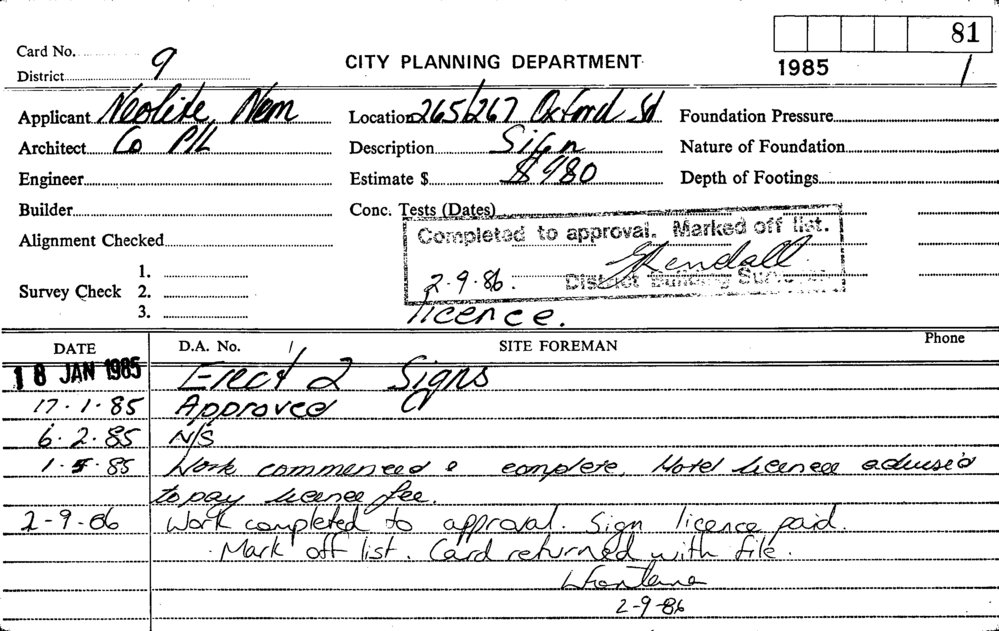 81
Card No.
9
CITY PLANNING DEPARTMENT
District
1985
1
Applicant Neolite Nem
Location 265/267 Oxford St
Foundation Pressure
Architect Co P/L
Description Sign
Nature of Foundation
Engineer
Estimate $ $980
Depth of Footings
Builder
Conc. Tests (Dates)
Alignment Checked
Completed to approval. Marked off list.
Survey Check
1.
2.
3.
2.9.86.
District Building
licence.
DATE
D.A. No.
SITE FOREMAN
Phone
18 JAN 1985 Erect 2 Signs
17.1.85 Approved
6.2.85 N/S
1.5.85 Work commenced & complete. Hotel licencee advised
to pay licence fee.
2-9-86 Work completed to approval. Sign licence paid.
Mark off list. Card returned with file.
2-9-86